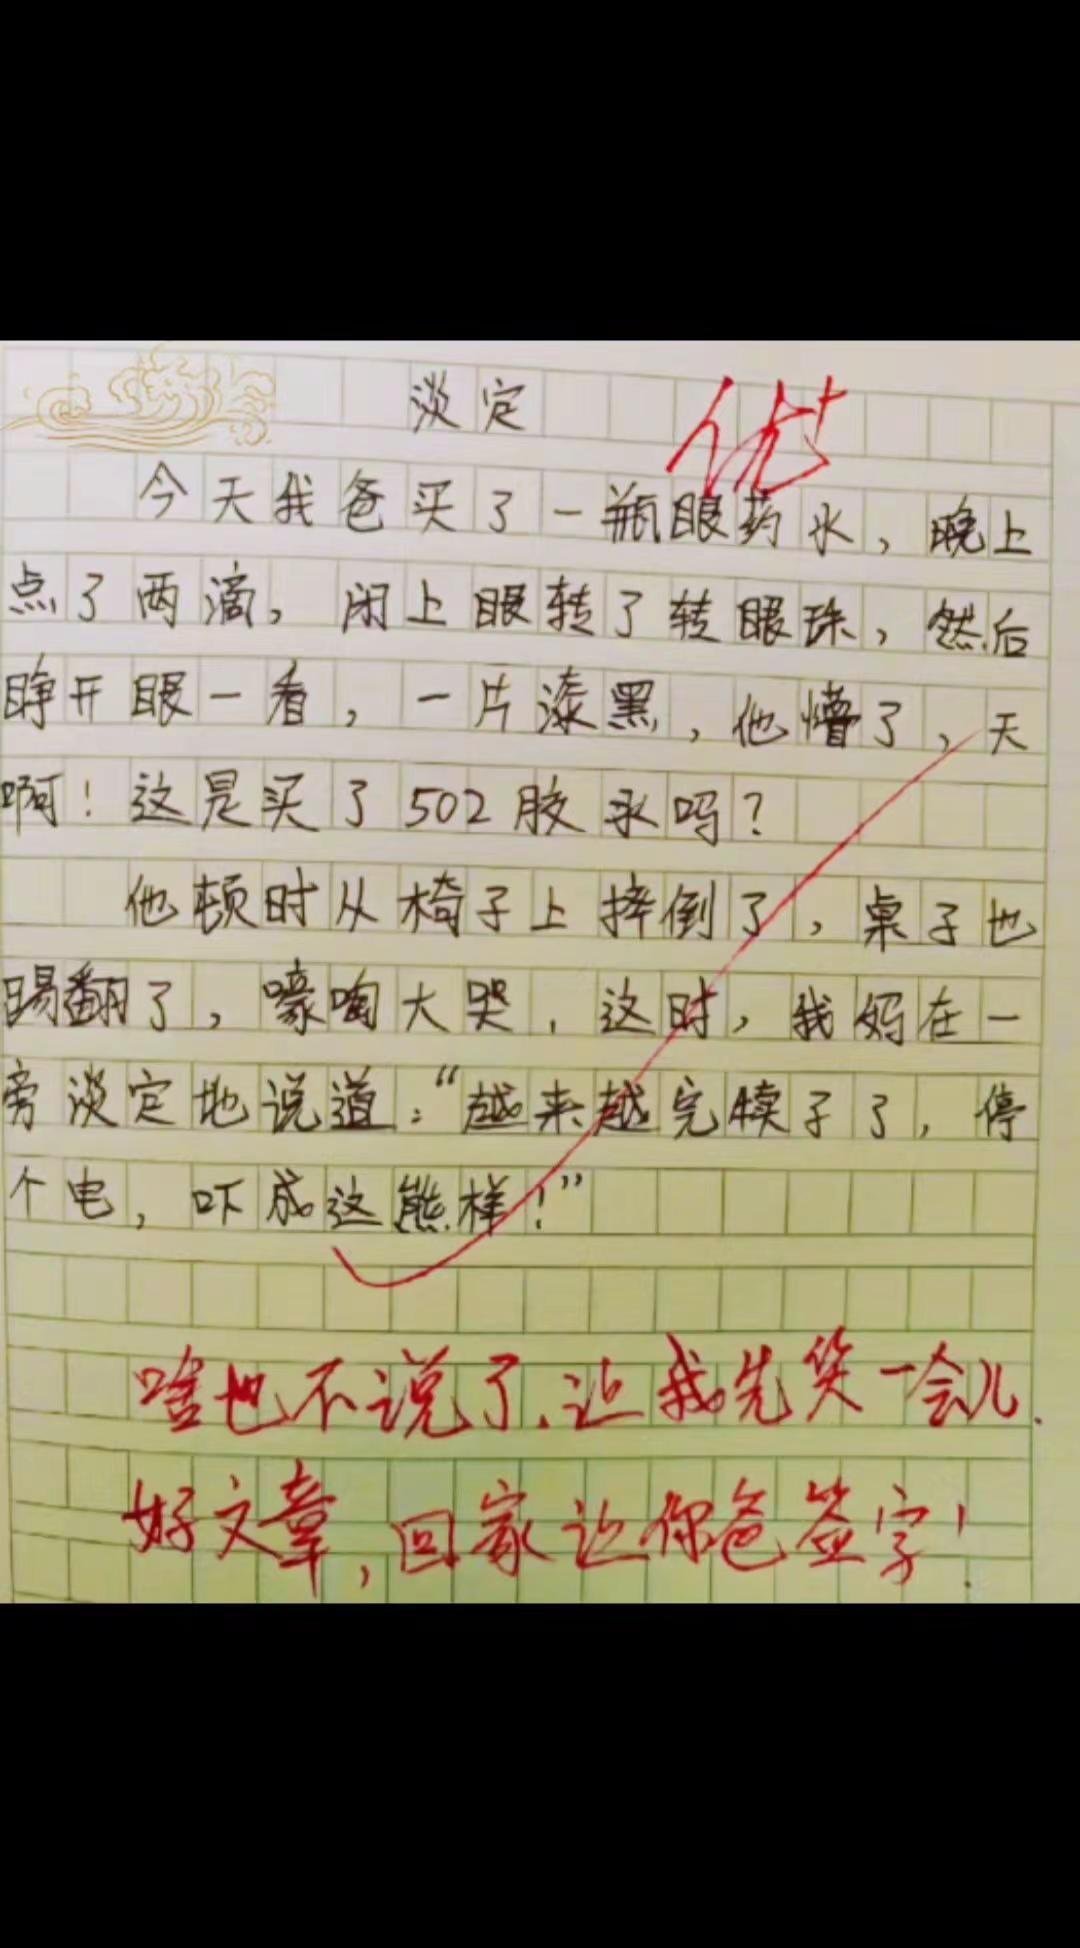 淡定
优+
今天我爸买了一瓶眼药水，晚上
点了两滴，闭上眼转了转眼珠，然后
睁开眼一看，一片漆黑，他懵了，天
啊！这是买了502胶水吗？
他顿时从椅子上摔倒了，桌子也
踢翻了，嚎啕大哭，这时，我妈在一
旁淡定地说道：“越来越完犊子了，停
个电，吓成这熊样！”
啥也不说了，让我先笑一会儿.
好文章，回家让你爸签字！